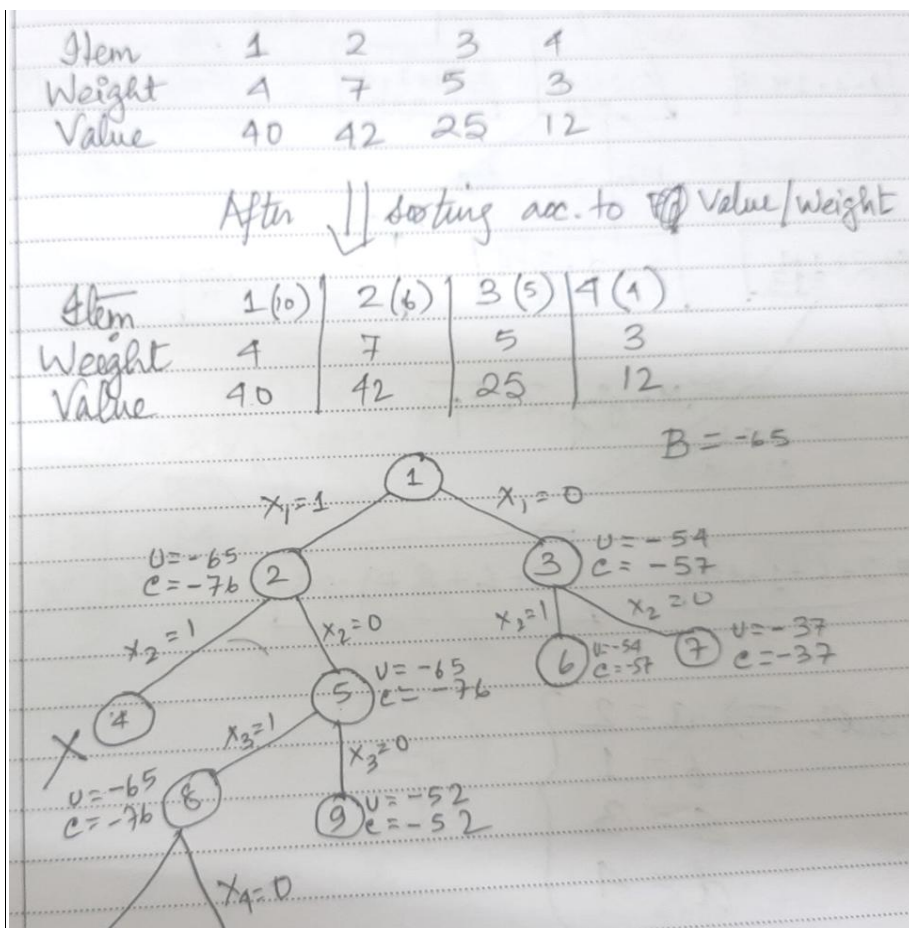 Item 1 2 3 4
Weight 4 7 5 3
Value 40 42 25 12
After sorting acc. to Value/Weight
Item 1(10) 2(6) 3(5) 4(4)
Weight 4 7 5 3
Value 40 42 25 12
B = -65
1
X₁=1 X₁=0
U=-65
C=-76
2
3
U=-54
C=-57
X₂=1 X₂=0
X₂=1 X₂=0
4
X
5
U=-65
C=-76
6
U=-54
C=-57
7
U=-37
C=-37
X₃=1 X₃=0
U=-65
C=-76
8
9
U=-52
C=-52
X₄=0